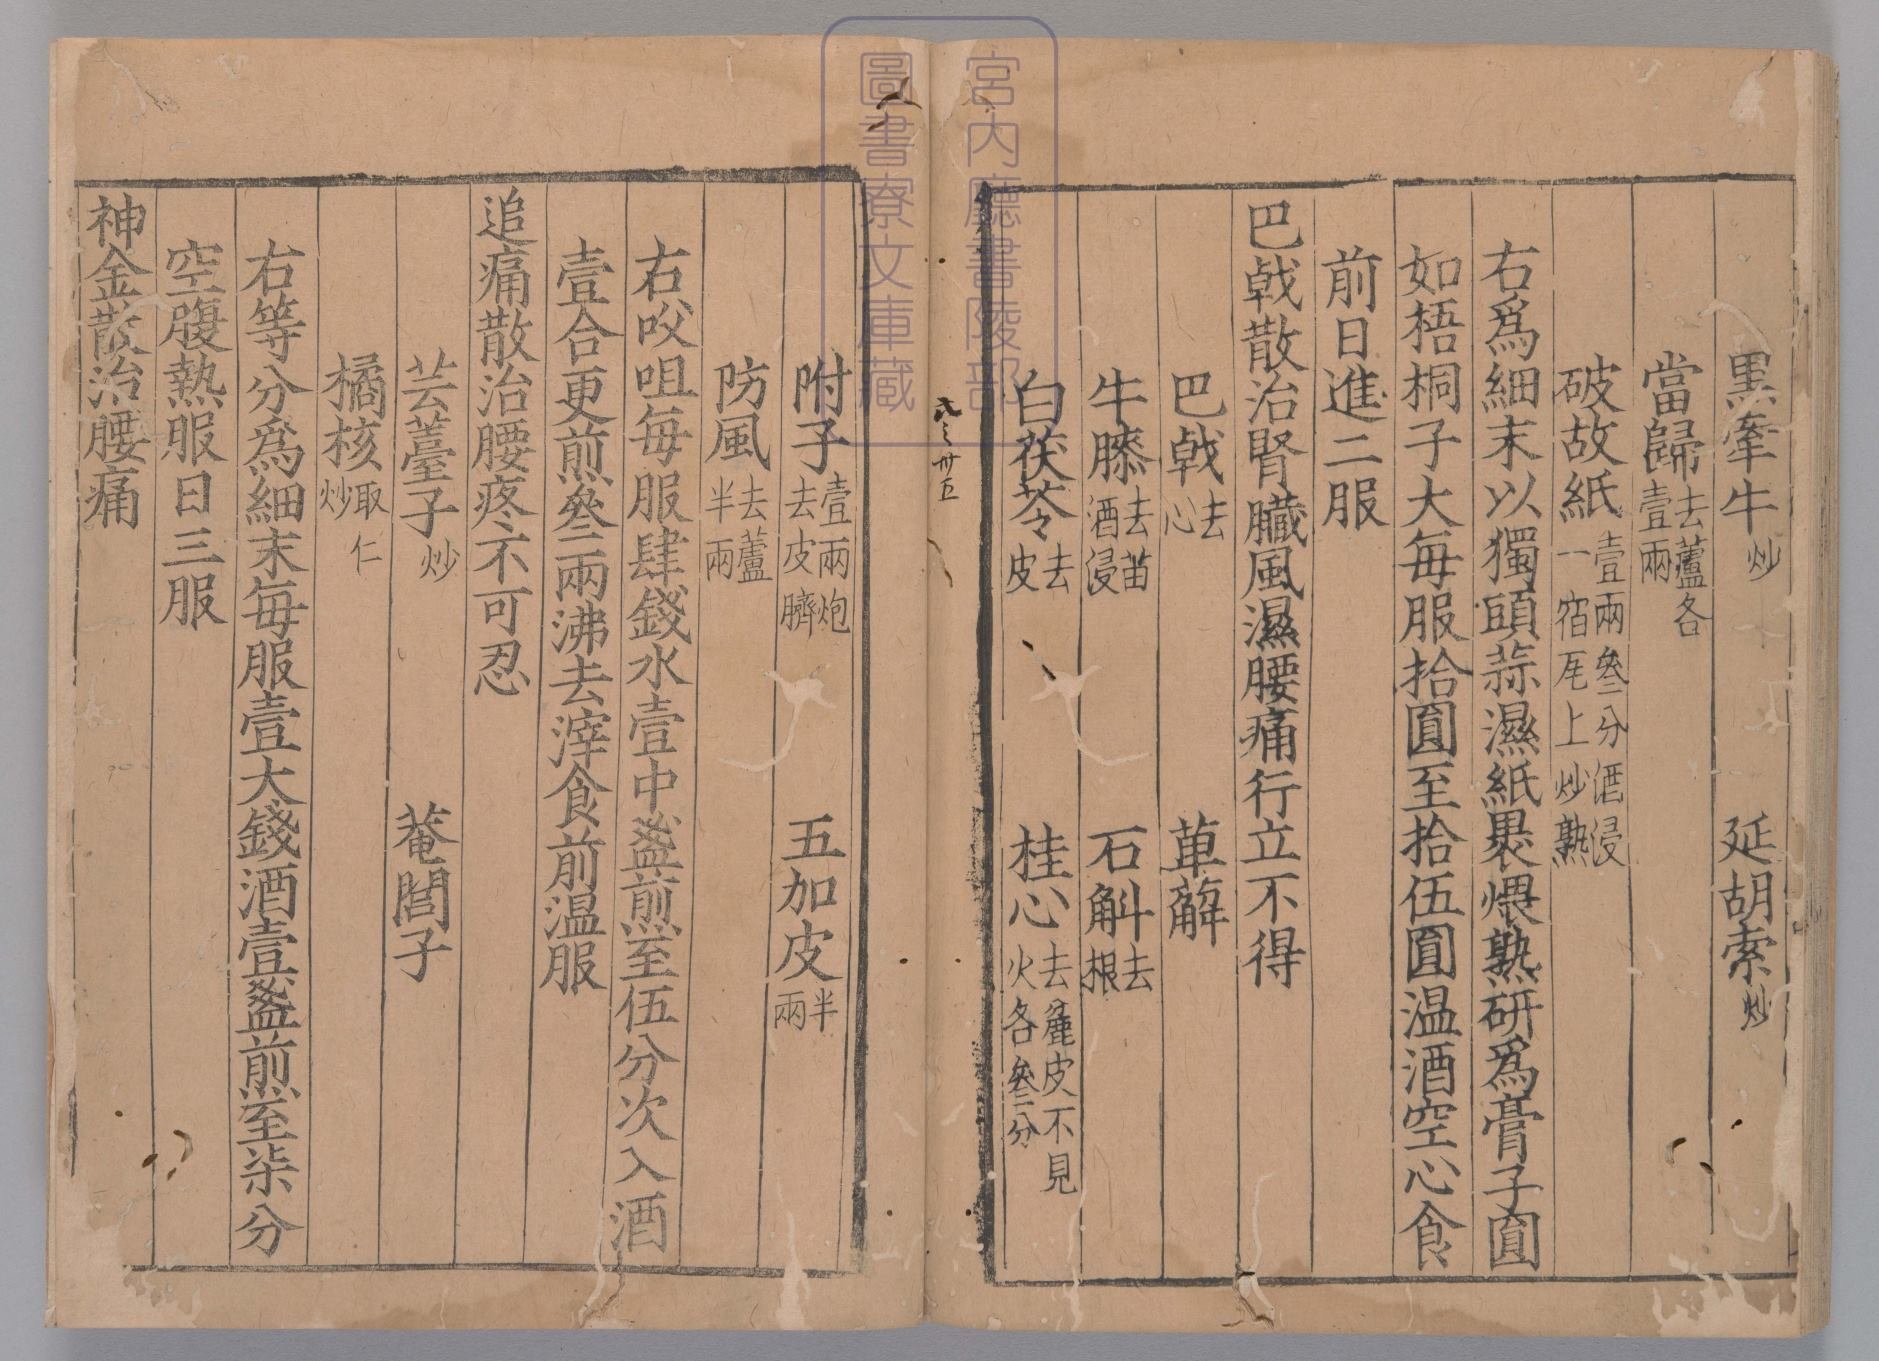 黒牽牛炒 延胡索炒
當歸去蘆各壹兩
破故紙壹兩叁分酒浸一宿瓦上炒熟
右爲細末以獨頭蒜濕紙褁煨熟研爲膏子圓
如梧桐子大每服拾圓至拾伍圓温酒空心食
前日進二服
巴戟散治腎臟風濕腰痛行立不得
巴戟去心 萆薢
牛膝去苗酒浸 石斛去根
白茯苓去皮 桂心去麄皮不見火各叁分
附子壹兩炮去皮臍 五加皮半兩
防風去蘆半兩
右㕮咀每服肆錢水壹中盞煎至伍分次入酒
壹合更煎叁兩沸去滓食前温服
追痛散治腰疼不可忍
芸薹子炒 菴䕡子
橘核取仁炒
右等分爲細末每服壹大錢酒壹盞煎至柒分
空腹熱服日三服
神金散治腰痛
宮内廳書陵部
圖書寮文庫藏